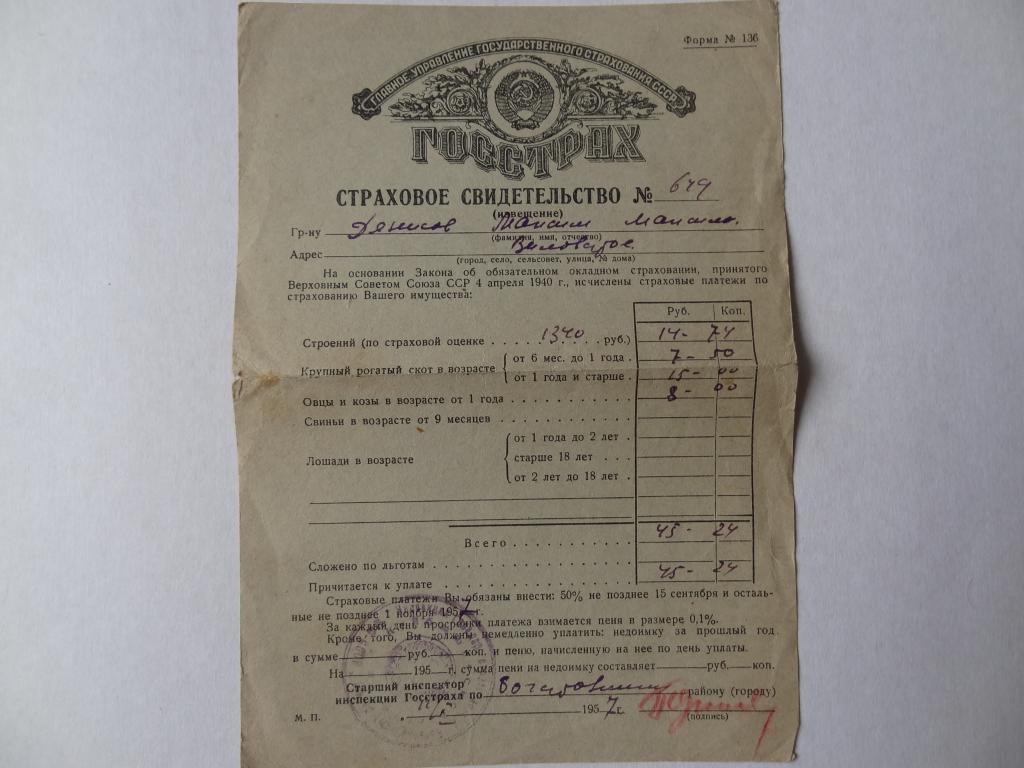 Форма № 136
ГЛАВНОЕ УПРАВЛЕНИЕ ГОСУДАРСТВЕННОГО СТРАХОВАНИЯ СССР
ГОССТРАХ
СТРАХОВОЕ СВИДЕТЕЛЬСТВО № 649
(извещение)
Гр-ну Денисов Максим Максим.
(фамилия, имя, отчество)
Адрес
(город, село, сельсовет, улица, № дома)
На основании Закона об обязательном окладном страховании, принятого
Верховным Советом Союза ССР 4 апреля 1940 г., исчислены страховые платежи по
страхованию Вашего имущества:
Руб. Коп.
Строений (по страховой оценке . . . . 1340 . . руб.) 14- 74
Крупный рогатый скот в возрасте { от 6 мес. до 1 года . 7- 50
от 1 года и старше . 15- 00
Овцы и козы в возрасте от 1 года . . . . . . . . . . . 8- 00
Свиньи в возрасте от 9 месяцев . . . . . . . . . . . .
Лошади в возрасте { от 1 года до 2 лет .
старше 18 лет . . .
от 2 лет до 18 лет .
Всего . . . . . . . . . . . 45- 24
Сложено по льготам . . . . . . . . . . . . . . . . . .
Причитается к уплате . . . . . . . . . . . . . . . . . 45- 24
Страховые платежи Вы обязаны внести: 50% не позднее 15 сентября и осталь-
ные не позднее 1 ноября 1957 г.
За каждый день просрочки платежа взимается пеня в размере 0,1%.
Кроме того, Вы должны немедленно уплатить: недоимку за прошлый год
в сумме руб. коп. и пеню, начисленную на нее по день уплаты.
На 195 г. сумма пени на недоимку составляет руб. коп.
Старший инспектор
инспекции Госстраха по району (городу)
М. П. 1957 г. (подпись)